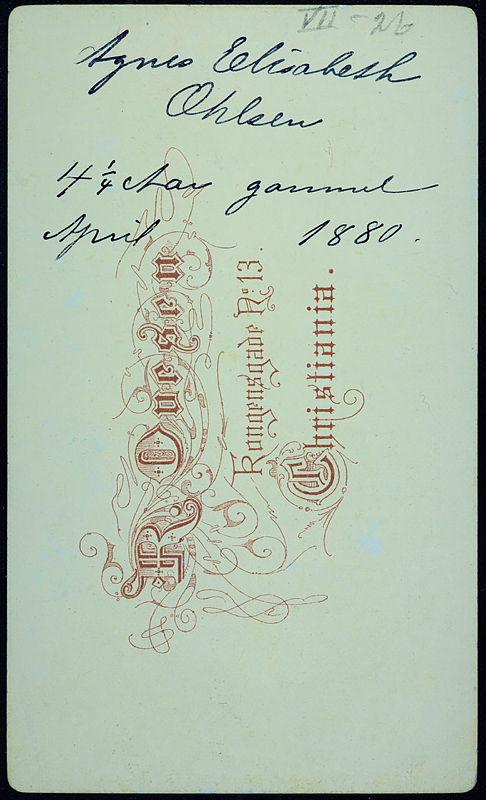 VII - 26
Agnes Elisabeth
Ohlsen
4 1/4 Aar gammel
April 1880.
R. Ovesen
Kongensgade No: 13.
Christiania.